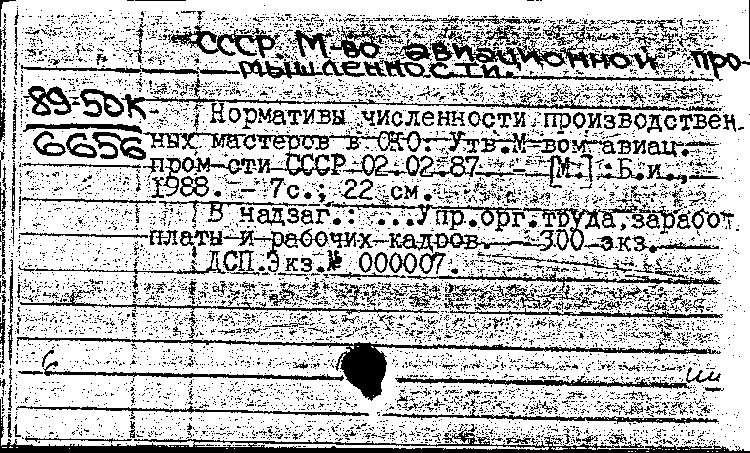 СССР М-во авиационной про-
мышленности.
89-50К
6656
Нормативы численности производствен-
ных мастеров в ОКО. Утв.М-вом авиац.
пром-сти СССР 02.02.87. - [М.] :Б.и.,
1988. - 7с.; 22 см.
В надзаг.: ...Упр.орг.труда,заработ.
платы и рабочих кадров. - 300 экз.
ДСП.Экз.№ 000007.